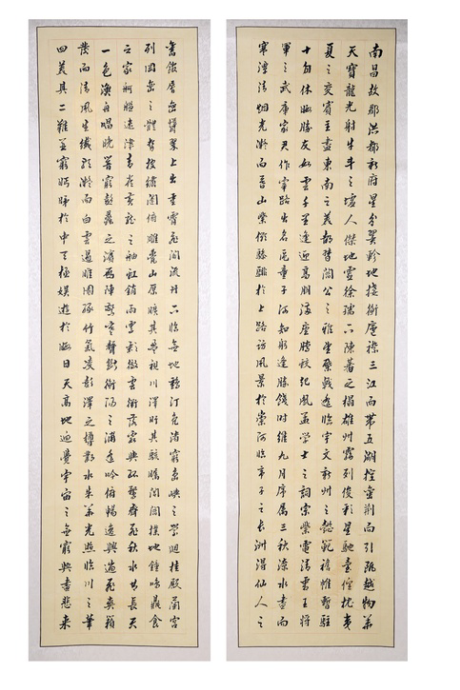 南昌故郡洪都新府星分翼軫地接衡廬襟三江而帶五湖控蠻荊而引甌越物華
天寶龍光射牛斗之墟人傑地靈徐孺下陳蕃之榻雄州霧列俊彩星馳臺隍枕夷
夏之交賓主盡東南之美都督閻公之雅望棨戟遙臨宇文新州之懿範襜帷暫駐
十旬休暇勝友如雲千里逢迎高朋滿座騰蛟起鳳孟學士之詞宗紫電清霜王將
軍之武庫家君作宰路出名區童子何知躬逢勝餞時維九月序屬三秋潦水盡而
寒潭清煙光凝而暮山紫儼驂騑於上路訪風景於崇阿臨帝子之長洲得仙人之
舊館層巒聳翠上出重霄飛閣流丹下臨無地鶴汀鳧渚窮島嶼之縈迴桂殿蘭宮
列岡巒之體勢披繡闥俯雕甍山原曠其盈視川澤盱其駭矚閭閻撲地鐘鳴鼎食
之家舸艦迷津青雀黃龍之舳虹銷雨霽彩徹雲衢落霞與孤鶩齊飛秋水共長天
一色漁舟唱晚響窮彭蠡之濱雁陣驚寒聲斷衡陽之浦遙吟俯暢逸興遄飛爽籟
發而清風生纖歌凝而白雲遏睢園綠竹氣凌彭澤之樽鄴水朱華光照臨川之筆
四美具二難並窮睇眄於中天極娛遊於暇日天高地迥覺宇宙之無窮興盡悲來